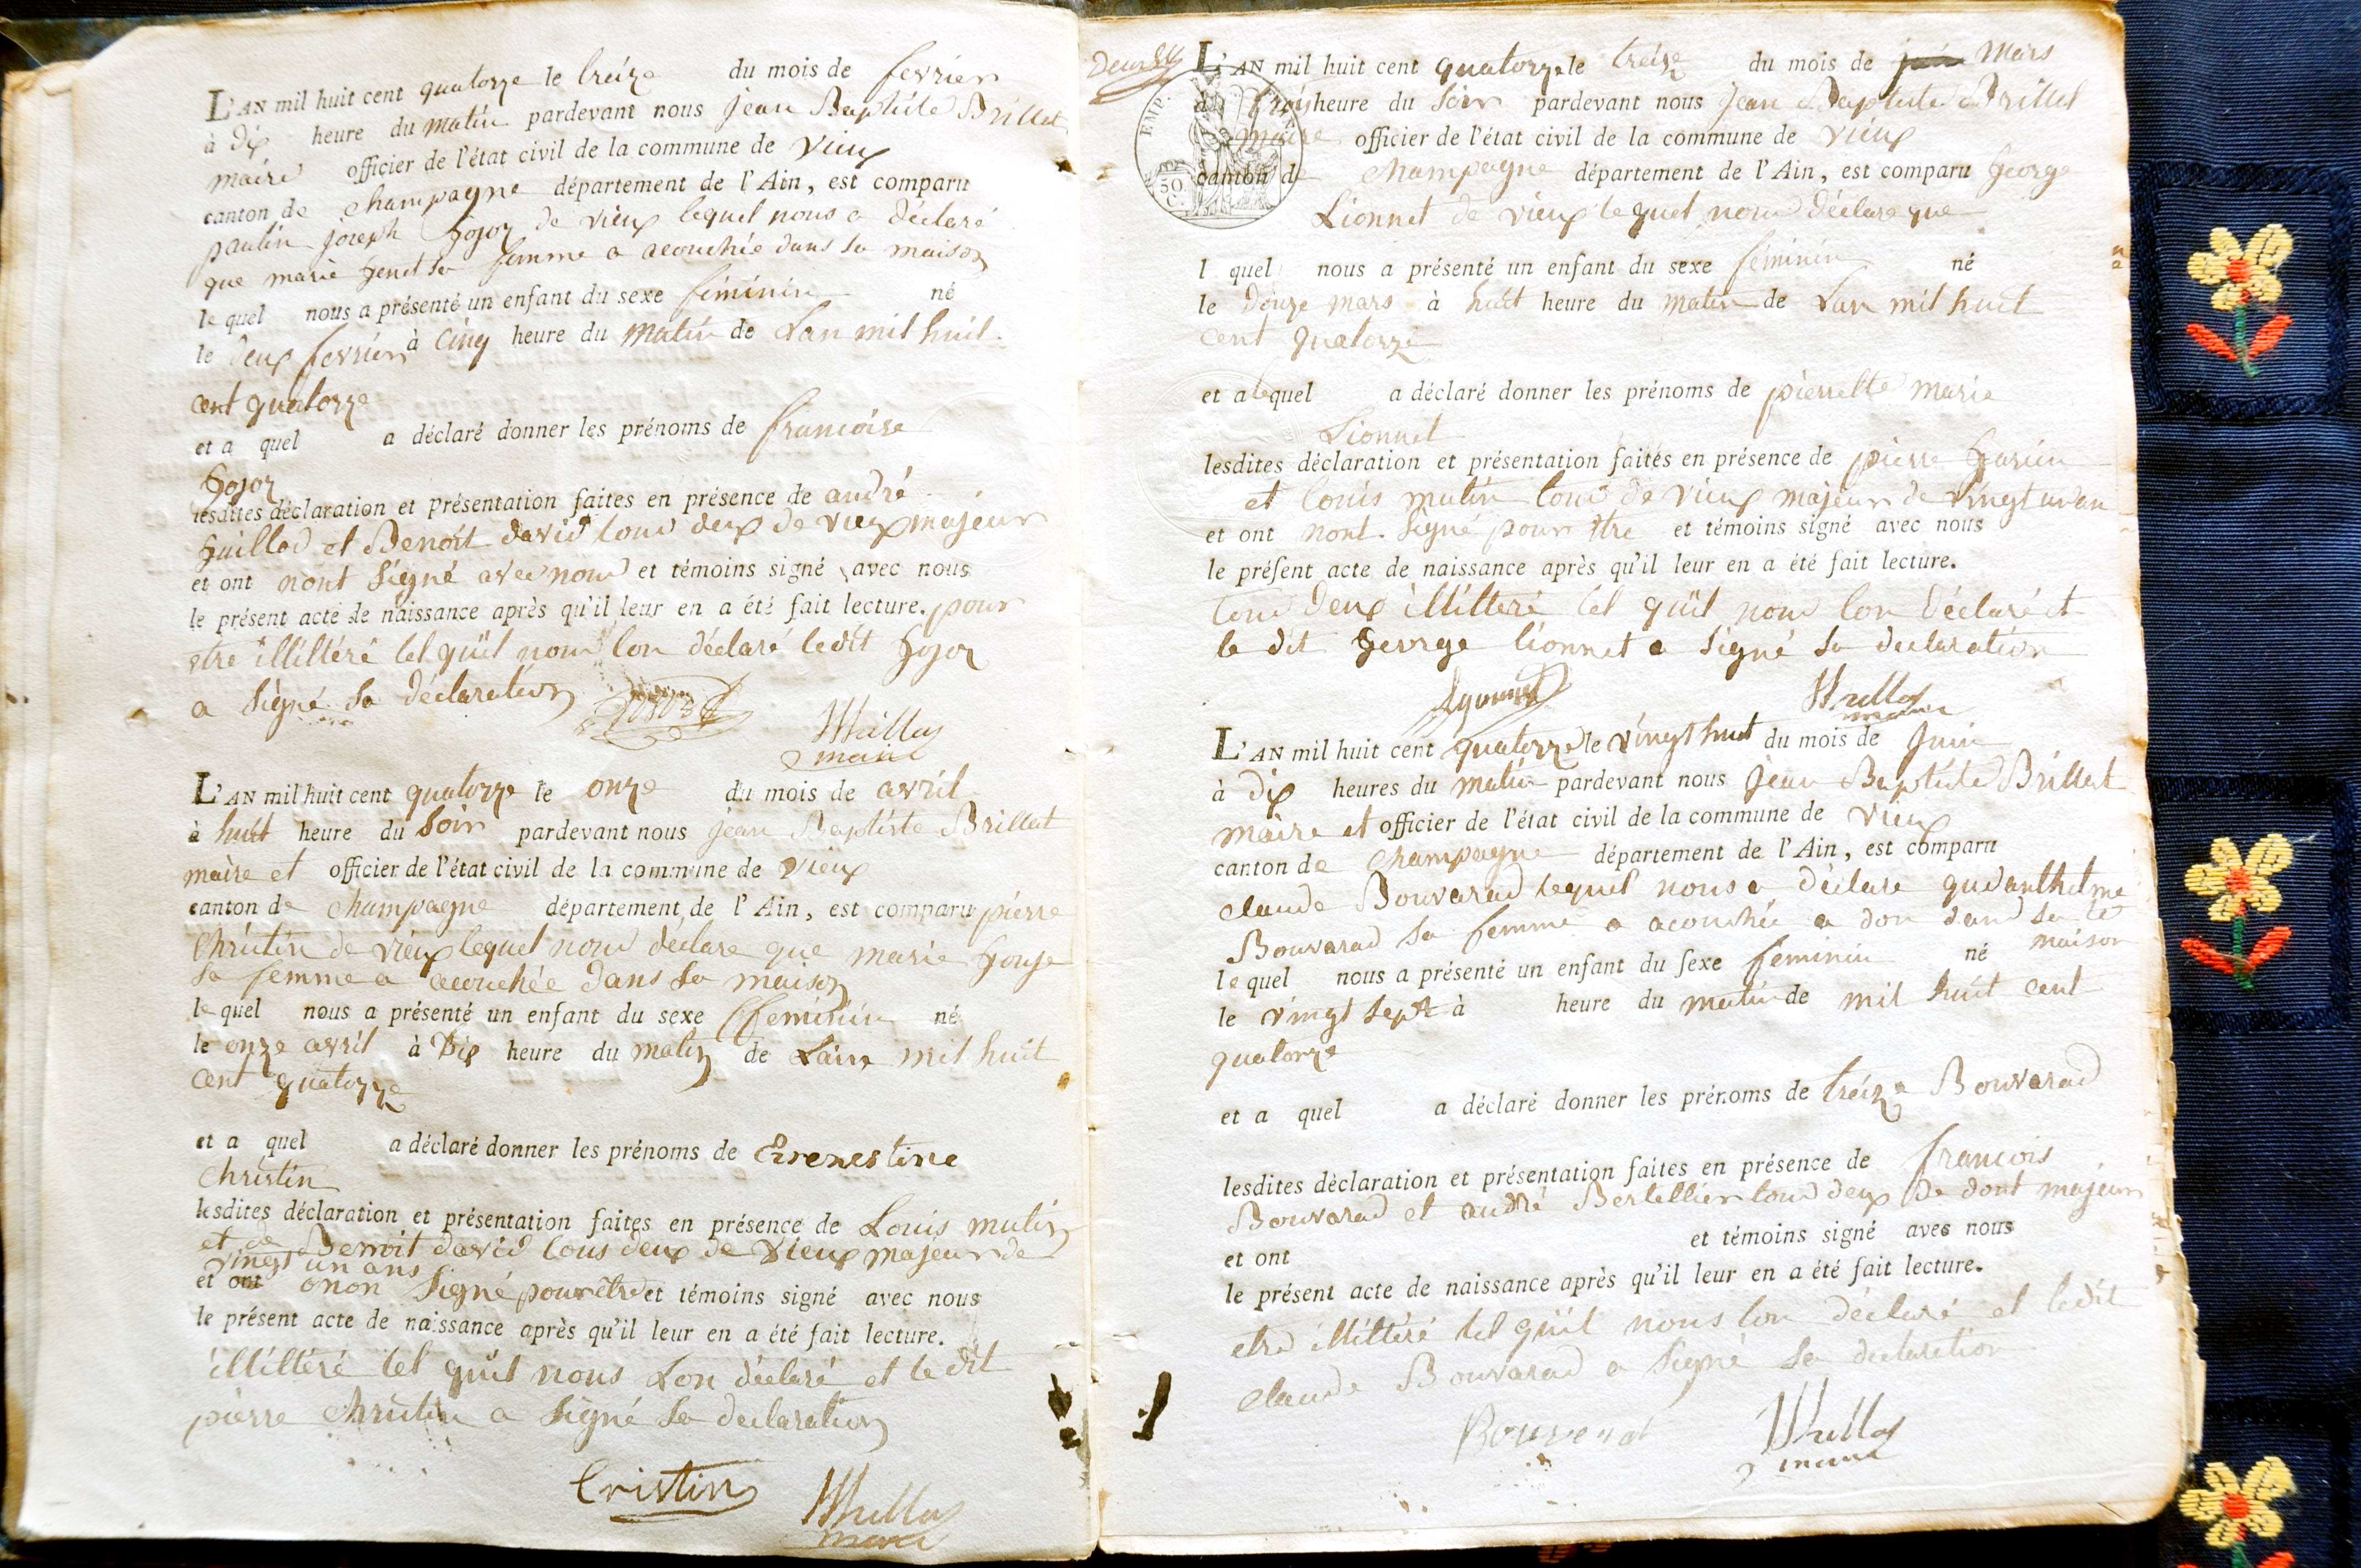 L'AN mil huit cent quatorze le treize du mois de fevrier
à dix heure du matin pardevant nous jean Baptiste Brillat
maire officier de l'état civil de la commune de vieux
canton de champagne département de l'Ain, est comparu
paulin joseph gojoz de vieux lequel nous a déclaré
que marie genet sa femme a acouchée dans sa maison
le quel nous a présenté un enfant du sexe féminin né
le deux fevrier à cinq heure du matin de Lan mil huit
cent quatorze
et a quel a déclaré donner les prénoms de francoise
gojoz
lesdites déclaration et présentation faites en présence de andré
guillod et Benoit david tous deux de vieux majeur
et ont nont signé avec nous et témoins signé avec nous
le présent acte de naissance après qu'il leur en a été fait lecture. pour
etre illiltéré tel quil nous lon déclaré ledit gojoz
a signé sa déclaration
maire
L'AN mil huit cent quatorze le onze du mois de avril
à huit heure du soir pardevant nous jean Baptiste Brillat
maire et officier de l'état civil de la commune de vieux
canton de champagne département de l'Ain, est comparu pierre
christin de vieux lequel nous déclare que marie gouje
sa femme a acouchée dans sa maison
le quel nous a présenté un enfant du sexe féminin né
le onze avril à Dix heure du matin de Lan mil huit
cent quatorze
et a quel a déclaré donner les prénoms de Erenestine
christin
lesdites déclaration et présentation faites en présence de Louis mutin
et de Benoit david tous deux de vieux majeur de
vingt un ans
et ont onon signé pour être et témoins signé avec nous
le présent acte de naissance après qu'il leur en a été fait lecture.
illiltéré tel quil nous Lon déclaré et le dit
pierre christin a signé sa declaration
Cristin
maire
L'AN mil huit cent quatorze le treize du mois de Mars
à trois heure du soir pardevant nous jean Baptiste Brillat
maire officier de l'état civil de la commune de vieux
canton de champagne département de l'Ain, est comparu george
EMP.
50 C.
Lionnet de vieux lequel nous déclare que
l quel nous a présenté un enfant du sexe féminin né
le douze mars à huit heure du matin de Lan mil huit
cent quatorze
et a lequel a déclaré donner les prénoms de pierrette marie
Lionnet
lesdites déclaration et présentation faites en présence de pierre
et louis mutin tous de vieux majeur de vingt un an
et ont nont signé pour être et témoins signé avec nous
le présent acte de naissance après qu'il leur en a été fait lecture.
tous deux illiltéré tel quil nous lon déclaré et
le dit george lionnet a signé sa declaration
maire
L'AN mil huit cent quatorze le vingt huit du mois de juin
à dix heures du matin pardevant nous jean Baptiste Brillat
maire et officier de l'état civil de la commune de vieux
canton de champagne département de l'Ain, est comparu
claude Bouvarad lequel nous a déclare que anthelme
Bouvarad sa femme a acouchée a don dans sa
maison
le quel nous a présenté un enfant du sexe féminin né
le vingt sept à heure du matin de mil huit cent
quatorze
et a quel a déclaré donner les prénoms de treize Bouvarad
lesdites déclaration et présentation faites en présence de francois
Bouvarad et andré Bertellier tous deux de dont majeur
et ont et témoins signé avec nous
le présent acte de naissance après qu'il leur en a été fait lecture.
etre illiltéré tel quil nous lon déclaré et ledit
claude Bouvarad a signé sa declaration
Bouverat
maire